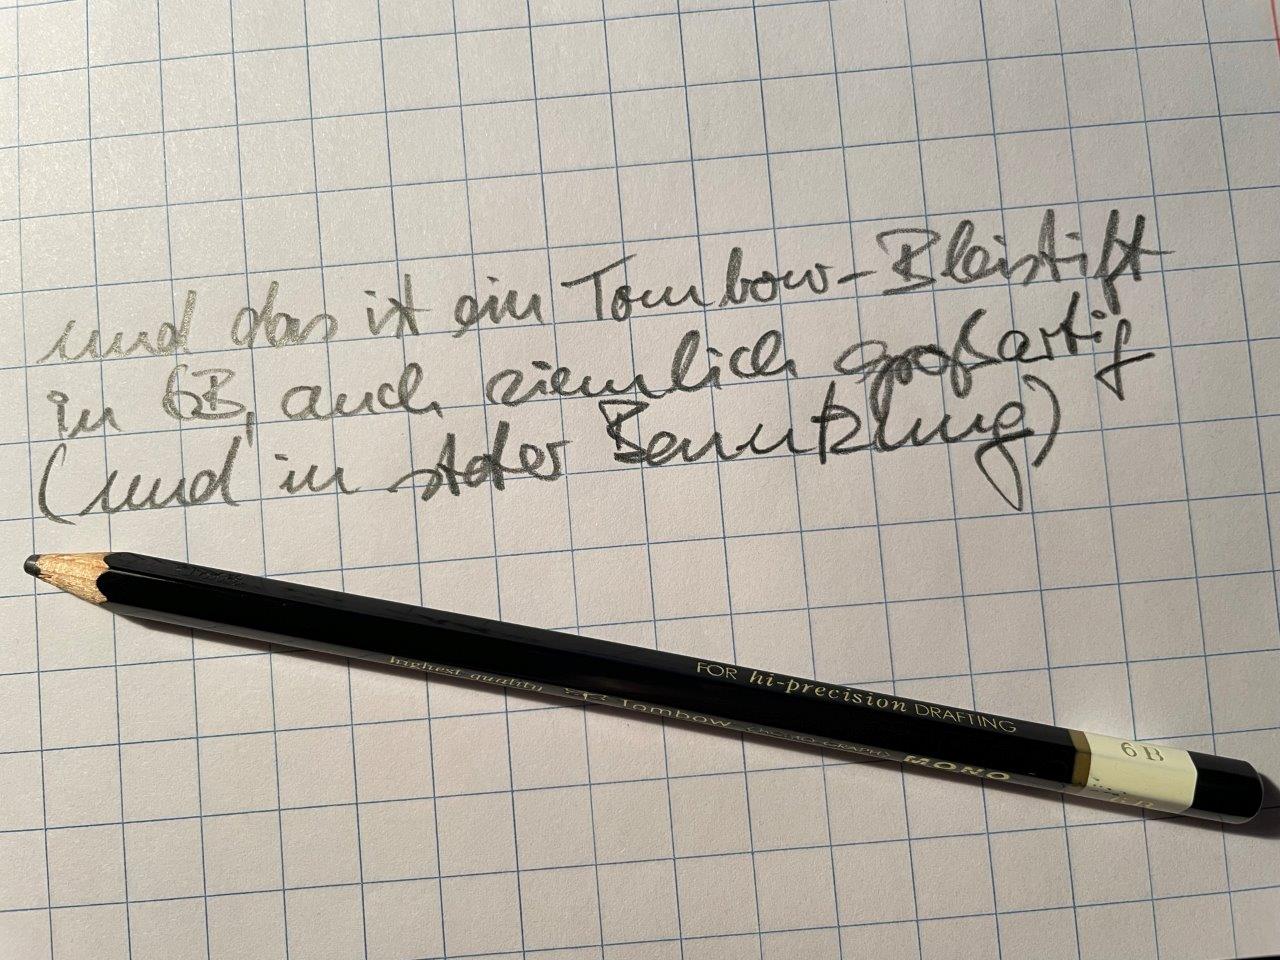 und das ist ein Tombow-Bleistift
in 6B, auch ziemlich großartig
(und in steter Benutzung)
FOR hi-precision DRAFTING
highest quality Tombow MONO
6B
6B